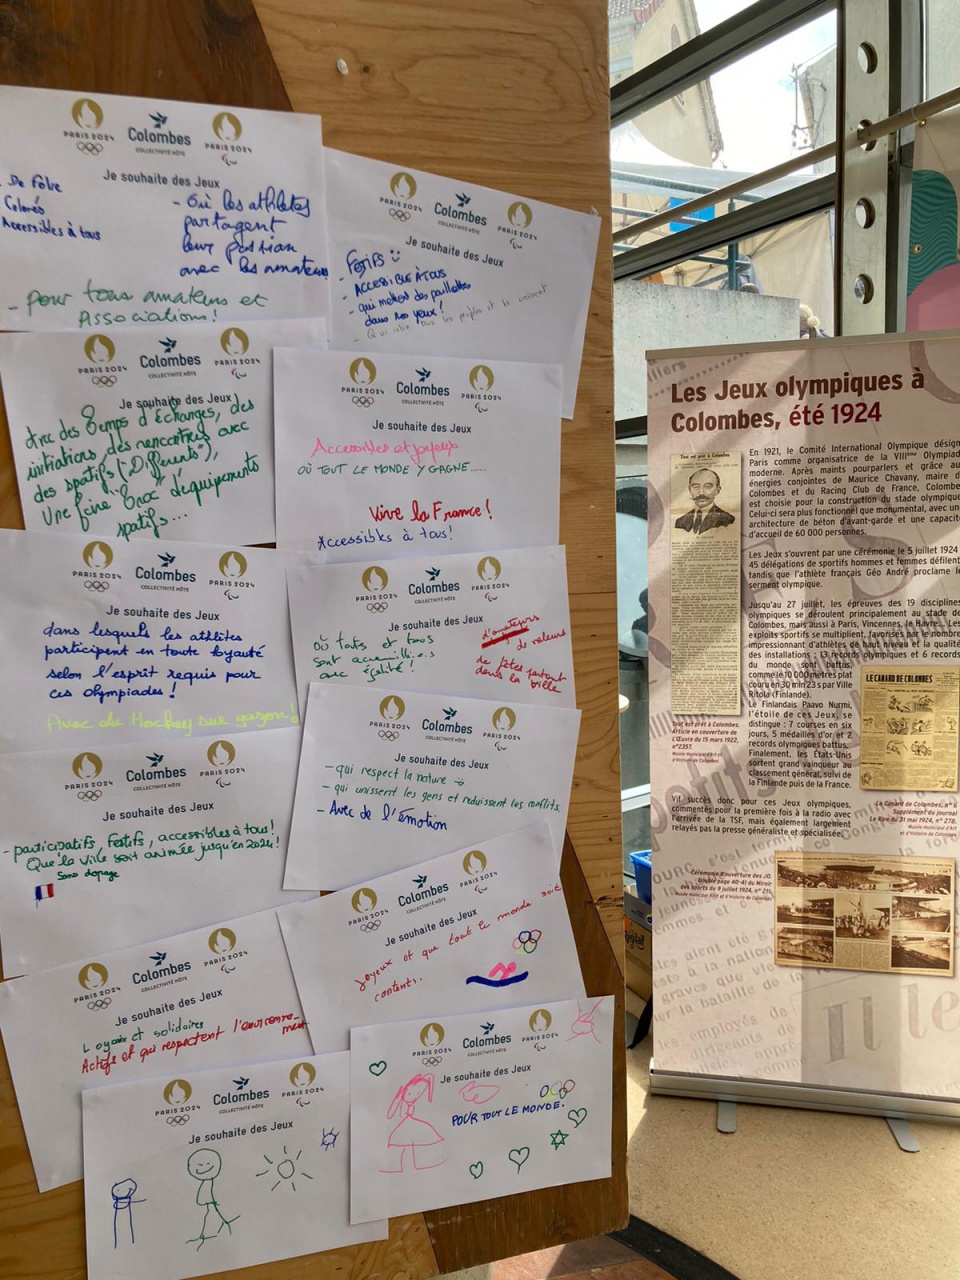 PARIS 2024
Colombes
COLLECTIVITÉ HÔTE
PARIS 2024
Je souhaite des Jeux
De Folie
Colorés
Accessibles à tous
- Où les athlètes
partagent
leur passion
avec les amateurs
- Pour tous amateurs et
Associations !
PARIS 2024
Colombes
COLLECTIVITÉ HÔTE
PARIS 2024
Je souhaite des Jeux
- FESTIFS
- ACCESSIBLE À TOUS
- qui mettent des paillettes
dans nos yeux !
PARIS 2024
Colombes
COLLECTIVITÉ HÔTE
PARIS 2024
Je souhaite des Jeux
Avec des temps d'échanges, des
initiations, des rencontres avec
des sportifs ("Différents"),
Une foire "troc" d'équipements
sportifs...
PARIS 2024
Colombes
COLLECTIVITÉ HÔTE
PARIS 2024
Je souhaite des Jeux
Accessibles et joyeux
OÙ TOUT LE MONDE Y GAGNE.....
Vive la France !
Accessibles à tous !
PARIS 2024
Colombes
COLLECTIVITÉ HÔTE
PARIS 2024
Je souhaite des Jeux
dans lesquels les athlètes
participent en toute loyauté
selon l'esprit requis pour
ces olympiades !
Avec du Hockey sur gazon !
PARIS 2024
Colombes
COLLECTIVITÉ HÔTE
PARIS 2024
Je souhaite des Jeux
où toutes et tous
sont accueilli.e.s
avec égalité !
de valeurs
de fêtes partout
dans la ville
PARIS 2024
Colombes
COLLECTIVITÉ HÔTE
PARIS 2024
Je souhaite des Jeux
- participatifs, festifs, accessibles à tous !
Que la ville soit animée jusqu'en 2024 !
Sans dopage
PARIS 2024
Colombes
COLLECTIVITÉ HÔTE
PARIS 2024
Je souhaite des Jeux
- qui respect la nature
- qui unissent les gens et réduissent les conflits
- Avec de l'Émotion
PARIS 2024
Colombes
COLLECTIVITÉ HÔTE
PARIS 2024
Je souhaite des Jeux
Loyaux et solidaires
Actifs et qui respectent l'environne-
ment
PARIS 2024
Colombes
COLLECTIVITÉ HÔTE
PARIS 2024
Je souhaite des Jeux
joyeux et que tout le monde soit
contents.
PARIS 2024
Colombes
COLLECTIVITÉ HÔTE
PARIS 2024
Je souhaite des Jeux
PARIS 2024
Colombes
COLLECTIVITÉ HÔTE
PARIS 2024
Je souhaite des Jeux
POUR TOUT LE MONDE.
Les Jeux olympiques à
Colombes, été 1924
En 1921, le Comité International Olympique désign
Paris comme organisatrice de la VIIIème Olympiad
moderne. Après maints pourparlers et grâce au
énergies conjointes de Maurice Chavany, maire d
Colombes et du Racing Club de France, Colombe
est choisie pour la construction du stade olympique
Celui-ci sera plus fonctionnel que monumental, avec un
architecture de béton d'avant-garde et une capacit
d'accueil de 60 000 personnes.
Les Jeux s'ouvrent par une cérémonie le 5 juillet 1924
45 délégations de sportifs hommes et femmes défilent
tandis que l'athlète français Géo André proclame le
serment olympique.
Jusqu'au 27 juillet, les épreuves des 19 disciplines
olympiques se déroulent principalement au stade de
Colombes, mais aussi à Paris, Vincennes, Le Havre... Les
exploits sportifs se multiplient, favorisés par le nombre
impressionnant d'athlètes de haut niveau et la qualité
des installations : 13 records olympiques et 6 records
du monde sont battus,
comme le 10 000 mètres plat
couru en 30 min 23 s par Ville
Ritola (Finlande).
Le Finlandais Paavo Nurmi,
l'étoile de ces Jeux, se
distingue : 7 courses en six
jours, 5 médailles d'or et 2
records olympiques battus.
Finalement, les États-Unis
sortent grand vainqueur au
classement général, suivi de
la Finlande puis de la France.
Vif succès donc pour ces Jeux olympiques,
commentés pour la première fois à la radio avec
l'arrivée de la TSF, mais également largement
relayés par la presse généraliste et spécialisée.
Tout est prêt à Colombes
Tout est prêt à Colombes.
Article en couverture de
L'Œuvre du 15 mars 1922,
n°2357.
Musée municipal d'Art et
d'Histoire de Colombes
LE CANARD DE COLOMBES
Le Canard de Colombes, n° 6
Supplément du journal
Le Rire du 31 mai 1924, n° 278.
Musée municipal d'Art
et d'Histoire de Colombes
Cérémonie d'ouverture des JO.
Double page 40-41 du Miroir
des sports du 9 juillet 1924, n° 211,
Musée municipal d'Art et d'Histoire de Colombes